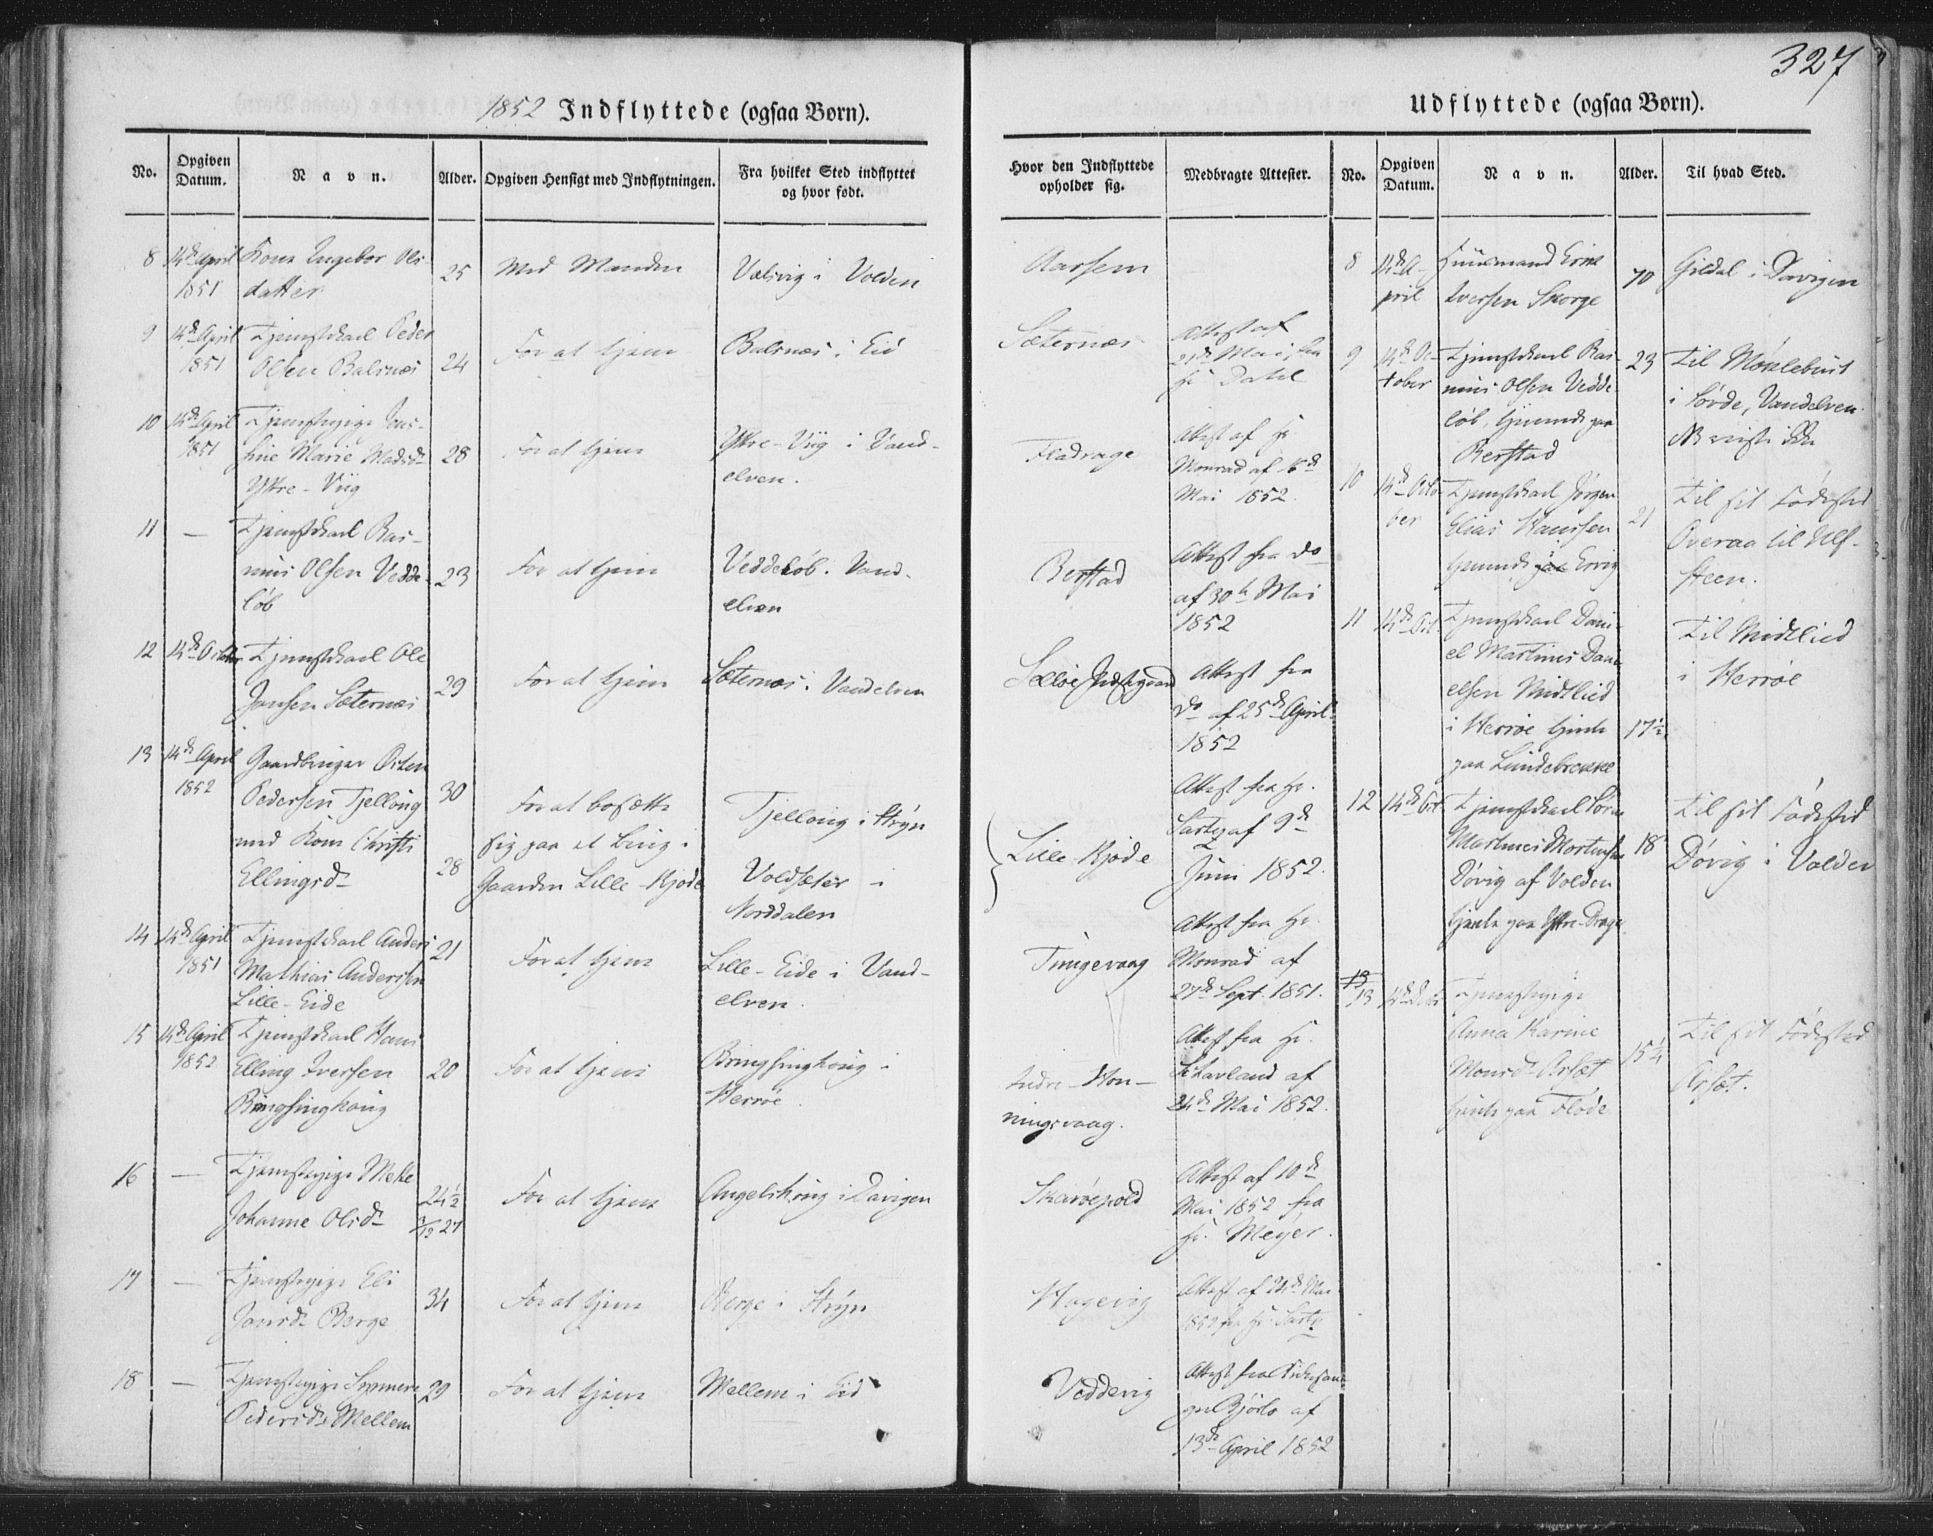 327
1852 Indflyttede (ogsaa Børn).
No.
Opgiven
Datum.
Navn.
Alder.
Opgiven Hensigt med Indflytningen.
Fra hvilket Sted indflyttet
og hvor født.
Hvor den Indflyttede
opholder sig.
Medbragte Attester.
8
14de April
1851
Kone Ingebor Ols-
datter
25
Med Manden
i Volden
Aarsem
9
14de April
1851
Tjenestekarl Peder
Olsen Balsnæs
24
For at tjene
Balsnæs i Eid
Sæternæs
Attest af
21de Mai, fra
Hr. Dahl
10
14de April
1851
Tjenestepige
Marie Madsd.
Yttre-Viig
28
For at tjene
Yttre-Viig i Vand-
elven.
Fladrage
Attest af Hr.
Monrad af 16de
Mai 1852.
11
—
Tjenestekarl Ras-
mus Olsen Vedde-
løb
23
For at tjene
Veddeløb. Vand-
elven
Berstad
Attest fra do
af 30te Mai
1852
12
14de October
Tjenestekarl Ole
Jansen Sæternæs
29
For at tjene
Sæternæs i Vandelven
Attest fra
do af 25de April
1852
13
14de April
1852
Gaardbruger Osten
Pedersen Tjellaug
med Kone Christi
Ellingsd.
30
28
For at bosætte
sig paa et Brug i
Gaarden Lille-Kjøde
Tjellaug i Stryn
Voldsæter i
Norddalen
Lille Kjøde
Attest fra Hr.
af 9de
Juni 1852.
14
14de April
1851
Tjenestekarl Anders
Mathias Anderssen
Lille-Eide
21
For at tjene
Lille-Eide i Vand-
elven.
Tungevaag
Attest fra Hr.
Monrad af
27de Sept. 1851.
15
14de April
1852
Tjenestekarl Hans
Elling Iversen
Bringsinghaug
20
For at tjene
Bringsinghaug i
Herrøe.
Indre-Hon-
ningsvaag.
Attest fra Hr.
af
24de Mai 1852.
16
—
Tjenestepige Mette
Johanne Olsd.
24½
For at tjene
Angelshaug i Davigen
Skarøepold
Attest af 10de
Mai 1852 fra
Hr. Meyer.
17
—
Tjenestepige Eli
Jonsd. Berge
34
For at tjene
Berge i Stryn
Hagevig
Attest af 24de Mai
1852 fra Hr.
18
—
Tjenestepige
Pedersd. Mellem
29
For at tjene
Mellem i Eid
Veddevig
Attest fra
af
13de April 1852
Udflyttede (ogsaa Børn).
No.
Opgiven
Datum.
Navn.
Alder.
Til hvad Sted.
8
14de A-
pril
Huusmand
Iversen Skorge
70
Gildal i Davigen
9
14de Oc-
tober
Tjenestekarl Ras-
mus Olsen Vedde-
løb, tjenende paa
Berstad
23
Til Møklebust
i Sørde, Vandelven.
NB reiste ikke
10
14de Octo-
ber
Tjenestekarl Jørgen
Elias Hanssen
tjenende paa Ervig
21
Til sit Fødested
Overaa til Ulf-
steen.
11
14de Oct.
Tjenestekarl Dani-
el Martinus Dani-
elsen Midtlied
i Herrøe tjente
paa Lundebrekke
17½
Til Midtlied
i Herrøe
12
14de Oct.
Tjenestekarl
Martinus Mortensen
Døvig af Volden
tjente paa Yttre-Drage
18
Til sit Fødested
Døvig i Volden
13
Tjenestepige
Anna Karine
Monsd. Arsæt
tjente paa Flode
15¼
Til sit Fødested
Arsæt.